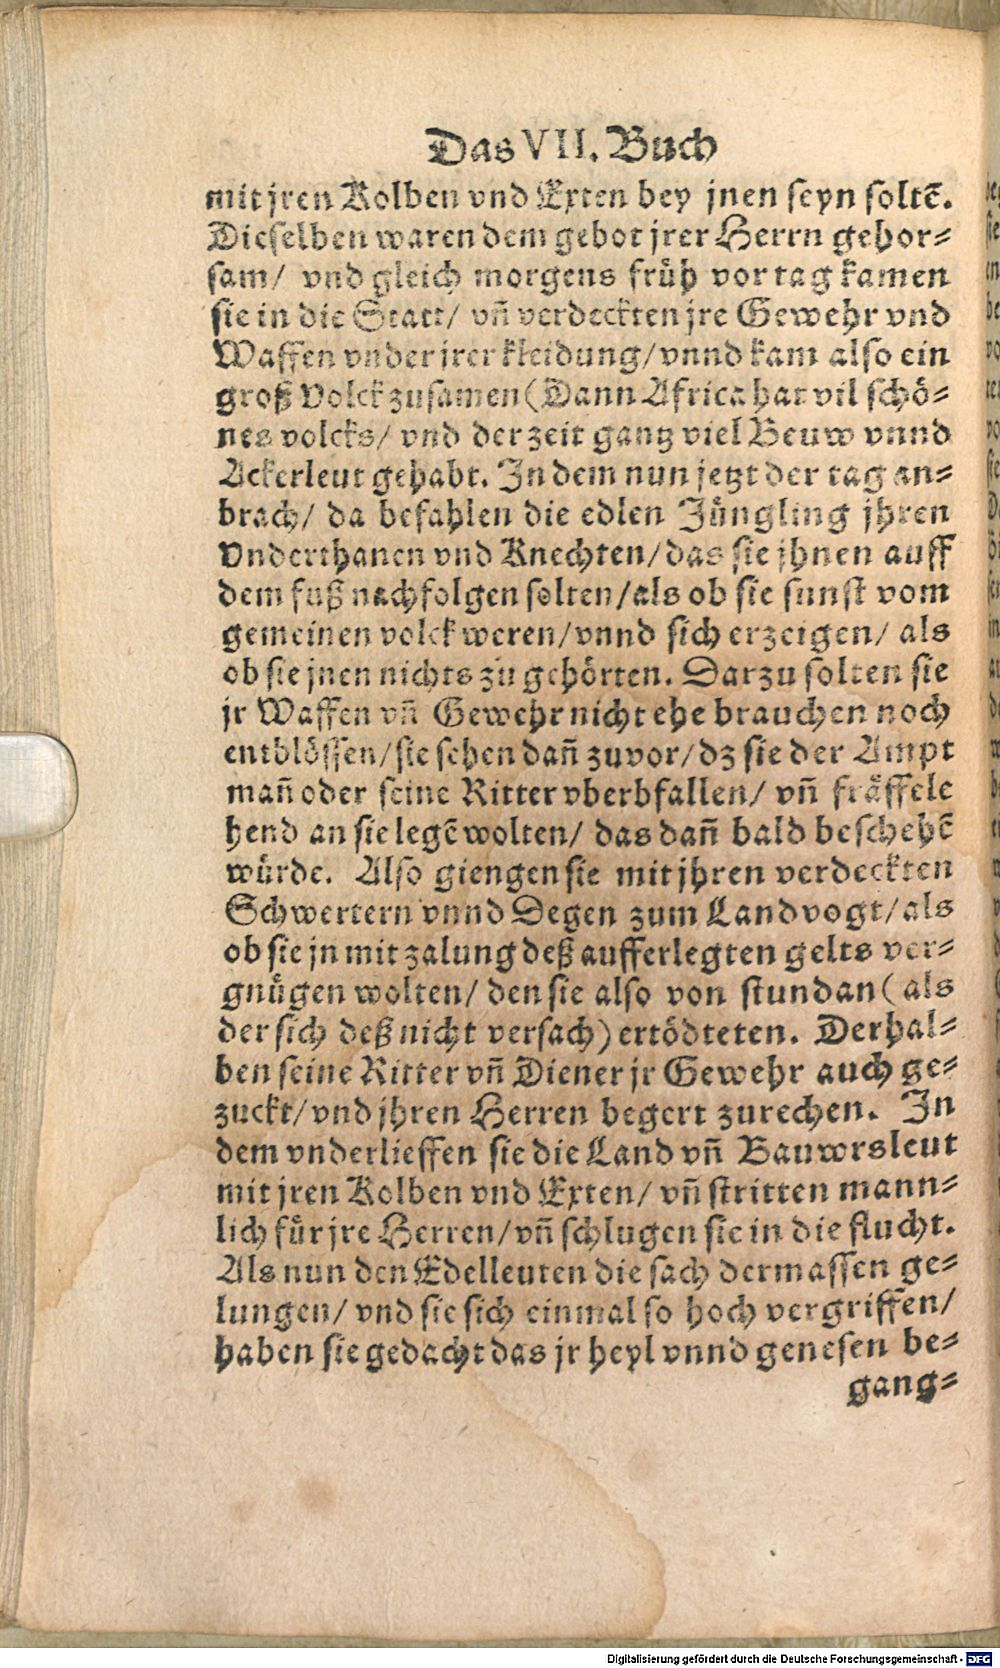 Das VII. Buch
mit jren Kolben vnd Exten bey jnen seyn soltē.
Dieselben waren dem gebot jrer Herrn gehor⸗
sam/ vnd gleich morgens früh vor tag kamen
sie in die Statt/ vn̄ verdeckten jre Gewehr vnd
Waffen vnder jrer kleidung/ vnnd kam also ein
groß Volck zusamen (Dann Africa hat vil schö⸗
nes volcks/ vnd der zeit gantz viel Beuw vnnd
Ackerleut gehabt. In dem nun jetzt der tag an⸗
brach/ da befahlen die edlen Jüngling jhren
Vnderthanen vnd Knechten/ das sie jhnen auff
dem fuß nachfolgen solten/ als ob sie sunst vom
gemeinen volck weren/ vnnd sich erzeigen/ als
ob sie jnen nichts zů gehörten. Darzu solten sie
jr Waffen vn̄ Gewehr nicht ehe brauchen noch
entblössen/ sie sehen dan̄ zuvor/ dz sie der Ampt
man̄ oder seine Ritter vberbfallen/ vn̄ fräffele
hend an sie legē wolten/ das dan̄ bald beschehē
würde. Also giengen sie mit jhren verdeckten
Schwertern vnnd Degen zum Landvogt/ als
ob sie jn mit zalung deß aufferlegten gelts ver⸗
gnügen wolten/ den sie also von stundan (als
der sich deß nicht versach) ertödteten. Derhal⸗
ben seine Ritter vn̄ Diener jr Gewehr auch ge⸗
zuckt/ vnd jhren Herren begert zurechen. In
dem vnderlieffen sie die Land vn̄ Bauwrsleut
mit jren Kolben vnd Exten/ vn̄ stritten mann⸗
lich für jre Herren/ vn̄ schlugen sie in die flucht.
Als nun den Edelleuten die sach dermassen ge⸗
lungen/ vnd sie sich einmal so hoch vergriffen/
haben sie gedacht das jr heyl vnnd genesen be⸗
gang⸗
Digitalisierung gefördert durch die Deutsche Forschungsgemeinschaft - DFG